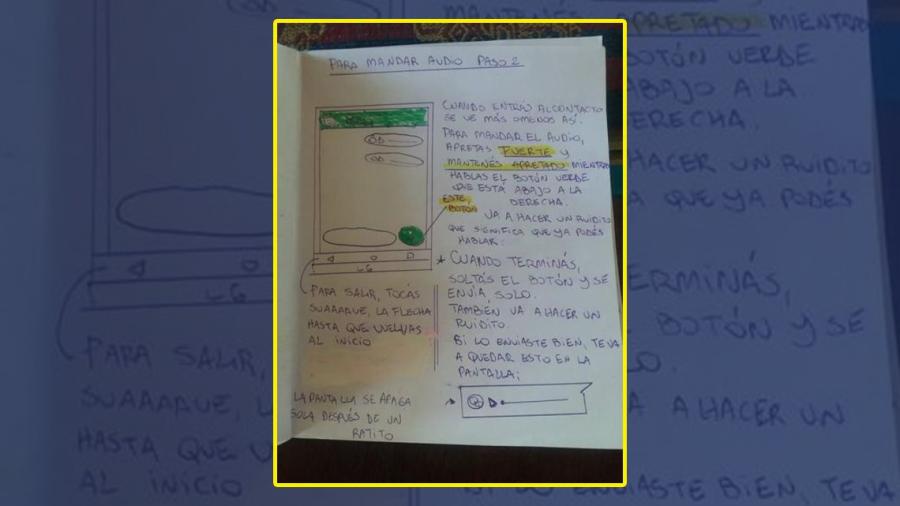 PARA MANDAR AUDIO PASO 2
CUANDO ENTRÁS AL CONTACTO
SE VE MÁS O MENOS ASÍ.
PARA MANDAR EL AUDIO,
APRETAS FUERTE Y
MANTENÉS APRETADO MIENTRAS
HABLAS EL BOTÓN VERDE
QUE ESTÁ ABAJO A LA
DERECHA.
ESTE
BOTÓN
VA A HACER UN RUIDITO
QUE SIGNIFICA QUE YA PODÉS
HABLAR.
* CUANDO TERMINÁS,
SOLTÁS EL BOTÓN Y SE
ENVIA, SOLO.
TAMBIÉN VA A HACER UN
RUIDITO.
SI LO ENVIASTE BIEN, TE VA
A QUEDAR ESTO EN LA
PANTALLA:
LG
PARA SALIR, TOCÁS
SUAAAAVE, LA FLECHA
HASTA QUE VUELVAS
AL INICIO
LA PANTALLA SE APAGA
SOLA DESPUÉS DE UN
RATITO